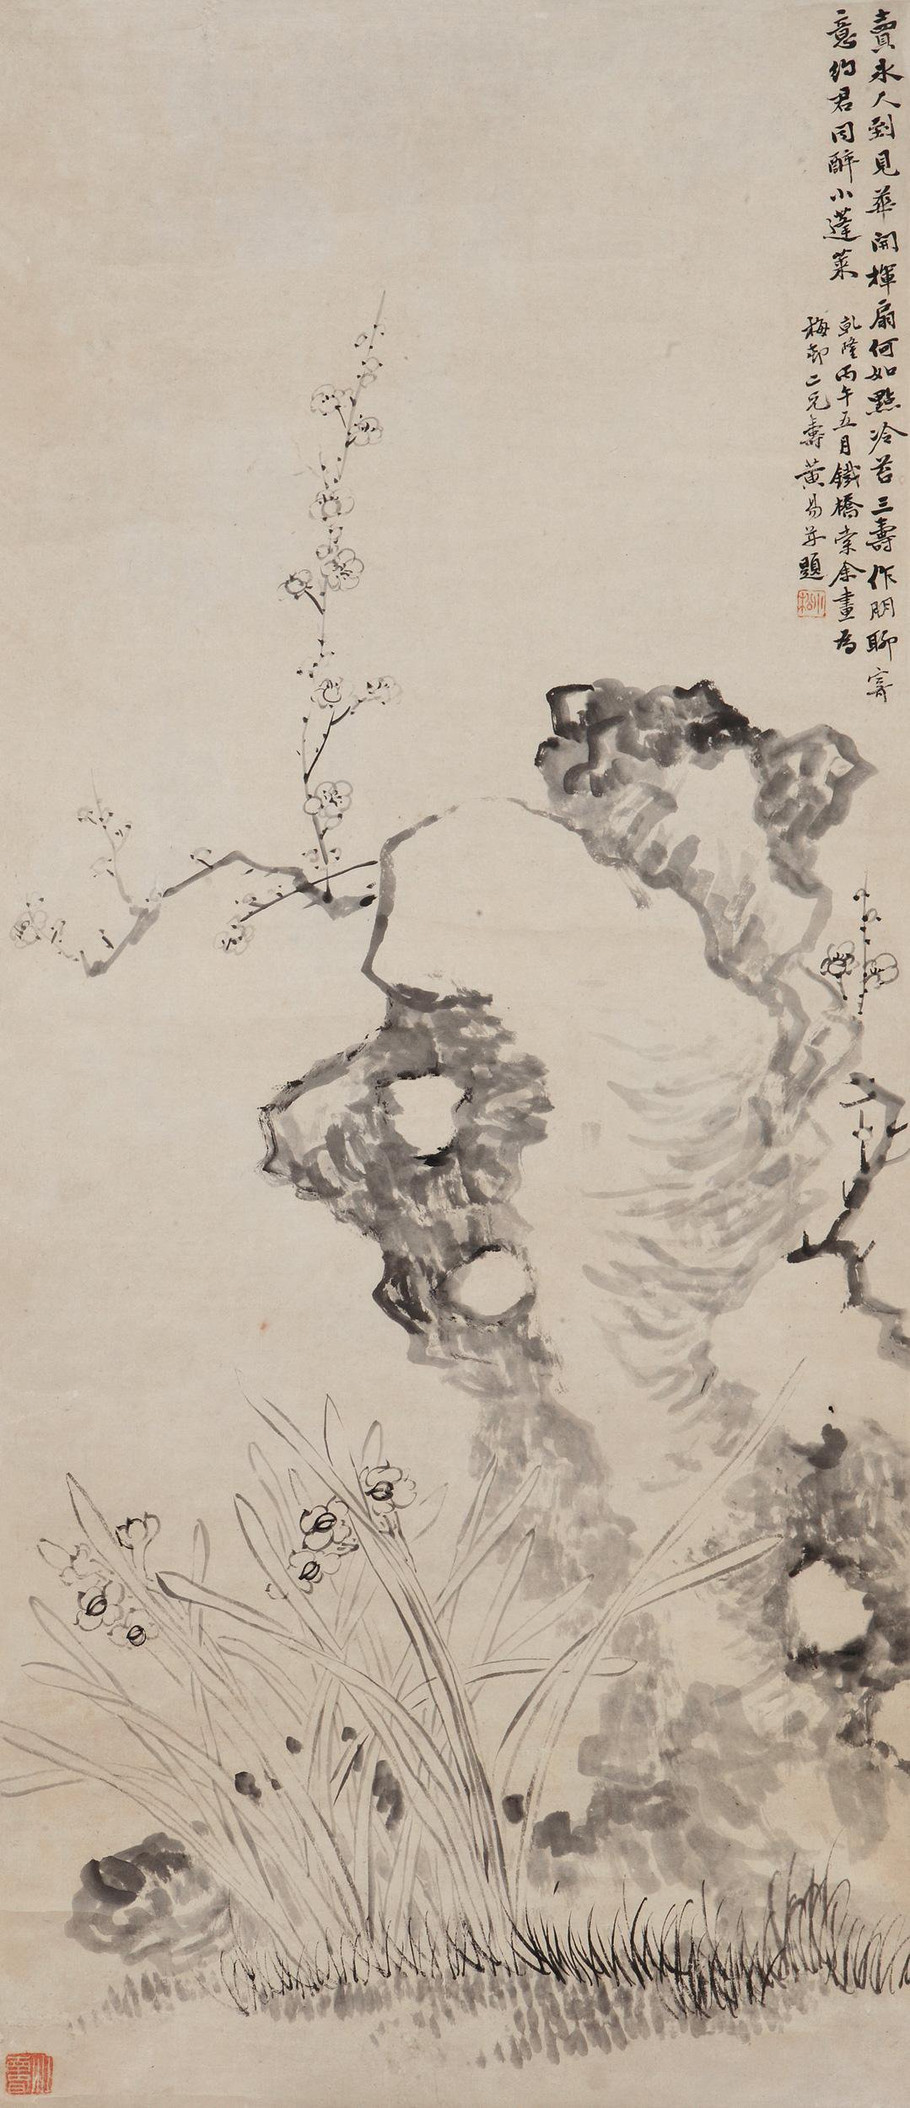 賣冰人到見華開揮扇何如點冷苔三壽作朋聊寄
意約君同醉小蓬萊
乾隆丙午五月鐵橋索余畫為
梅邨二兄壽黃易并題